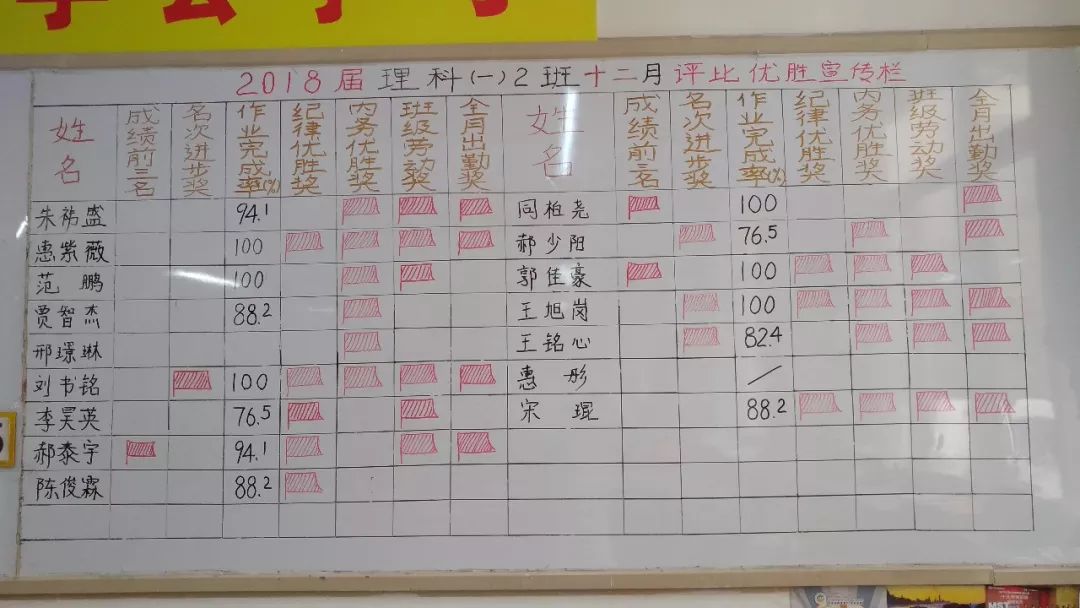 2018届理科(一)2班十二月评比优胜宣传栏
姓名 成绩前三名 名次进步奖 作业完成率(%) 纪律优胜奖 内务优胜奖 班级劳动奖 全月出勤奖 姓名 成绩前三名 名次进步奖 作业完成率(%) 纪律优胜奖 内务优胜奖 班级劳动奖 全月出勤奖
朱祐盛 94.1 同柏尧 100
惠紫薇 100 郝少阳 76.5
范鹏 100 郭佳豪 100
贾智杰 88.2 王旭岗 100
邢璟琳 王铭心 82.4
刘书铭 100 惠彤 /
李昊英 76.5 宋琨 88.2
郝泰宇 94.1
陈俊霖 88.2